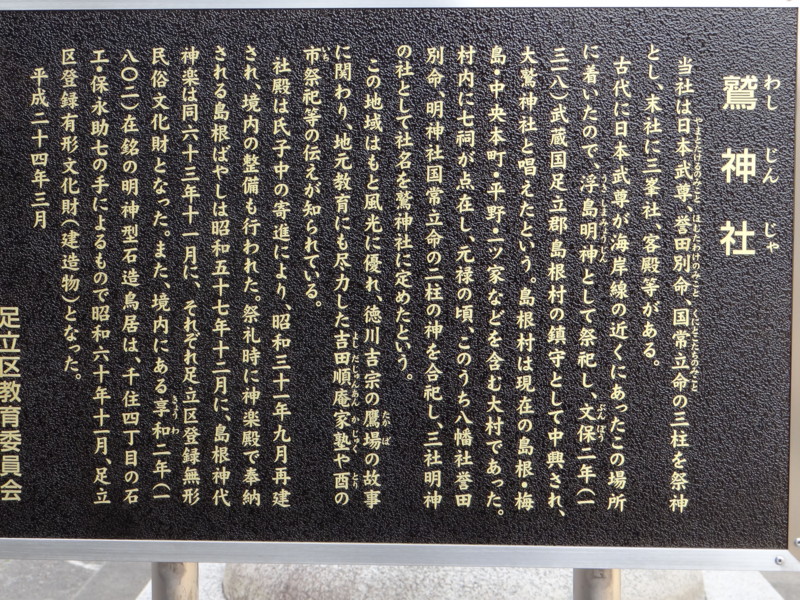 鷲神社
わしじんじゃ
当社は日本武尊、誉田別命、国常立命の三柱を祭神
やまとたけるのみこと ほむたわけのみこと くにとこたちのみこと
とし、末社に三峯社、客殿等がある。
古代に日本武尊が海岸線の近くにあったこの場所
に着いたので、浮島明神として祭祀し、文保二年(一
うきしまみょうじん ぶんぽう
三一八)武蔵国足立郡島根村の鎮守として中興され、
大鷲神社と唱えたという。島根村は現在の島根・梅
島・中央本町・平野・一ツ家などを含む大村であった。
村内に七祠が点在し、元禄の頃、このうち八幡社誉田
別命、明神社国常立命の二柱の神を合祀し、三社明神
の社として社名を鷲神社に定めたという。
この地域はもと風光に優れ、徳川吉宗の鷹場の故事
たかば
に関わり、地元教育にも尽力した吉田順庵家塾や酉の
よしだじゅんあんかじゅく とり
市祭祀等の伝えが知られている。
いち
社殿は氏子中の寄進により、昭和三十一年九月再建
され、境内の整備も行われた。祭礼時に神楽殿で奉納
される島根ばやしは昭和五十七年十二月に、島根神代
神楽は同六十三年十一月に、それぞれ足立区登録無形
民俗文化財となった。また、境内にある享和二年(一
きょうわ
八〇二)在銘の明神型石造鳥居は、千住四丁目の石
工・保永助七の手によるもので昭和六十年十一月、足立
区登録有形文化財(建造物)となった。
平成二十四年三月
足立区教育委員会